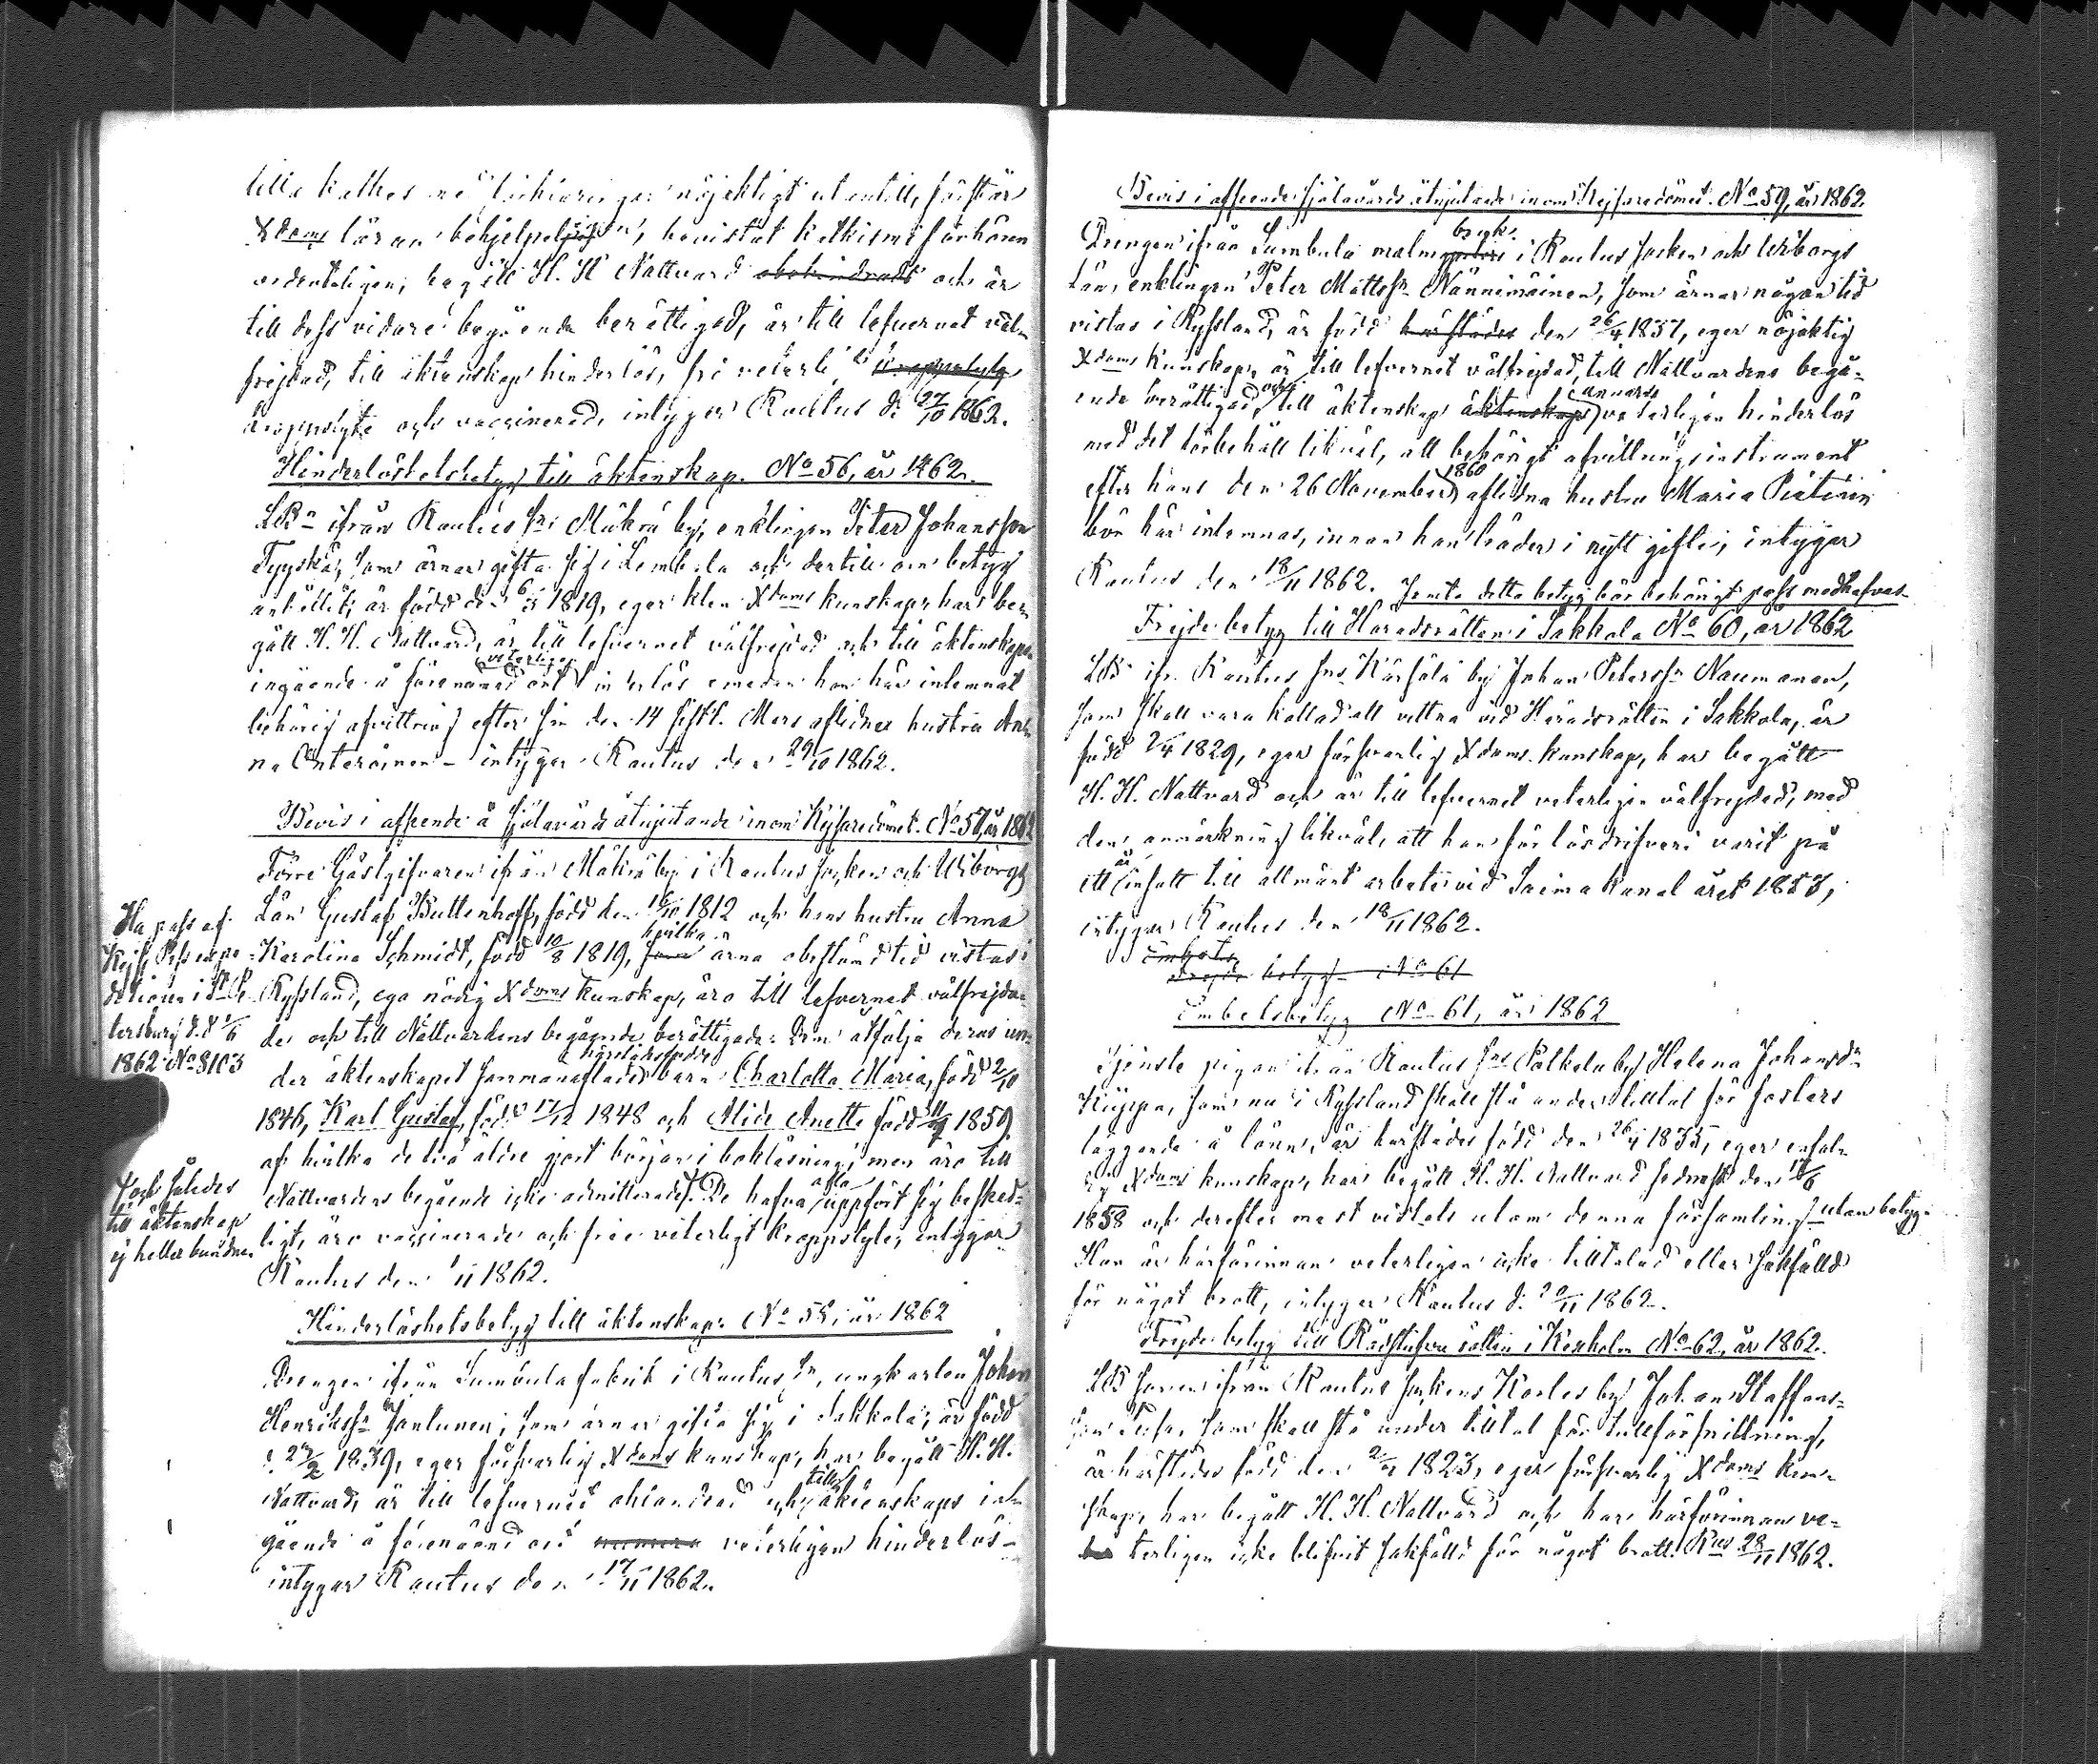 lilla kathes med förklaringar nöjaktigt utantill, förstår
Xdoms läran behjelpeligen, bevistat katkismi förhören
ordenteligen, begått H. H. Nattvard obehindradt och är
till dess vidare begående berättigad, är till lefvernet väl-
frejdad, till äktenskap hinderlös, fri veterli kroppslyte
kroppslyte och vaccinerad, intygar Rautus d. 27/10 1862.
Hinderlöshetsbetyg till äktenskap. No 56, år 1862.
ifrån Rautus Sns Mäkrä by, enklingen Peter Johansson
Tyyskä, som ärnar gifta sig i Lembala och dertill om betyg
anhållit, är född den 6 1819, eger klen Xdoms kunskap, har be-
gått H. H. Nattvard, är till lefvernet välfrejdad och till äktenskaps
ingående å förenämnd ort (veterligen) hinderlös emedan han här inlemnat
behörig afvittring efter sin den 14 sistl. Mars aflidna hustru An-
na Onteroinen – intygar Rautus den 29/10 1862.
Bevis i afseende å själavårds åtnjutande inom Kejsaredömet. No 57, år 1862
Förre Gästgifvaren ifrån Mäkrä by i Rautus socken och Wiborgs
Län Gustaf Buttenhoff, född den 16/10 1812 och hans hustru Anna
Karolina Schmidt, född 10/8 1819, som hvilka ärna obestämd tid vistas i
Ryssland, ega nödig Xdoms kunskap, äro till lefvernet välfrejda-
de och till Nattvardens begående berättigade. Dem åtfölja deras un-
der äktenskapet sammanaflade härstädesfödde barn Charlotta Maria, född 2/10
1846, Karl Gustaf, född 17/12 1848 och Alide Anette född 11 1850
af hvilka de två äldre gjort början i bokläsning, men äro till
Nattvardens begående icke admitterade. De hafva alla uppfört sig besked-
ligt, äro vaccinerade och frie veterligt kroppslyte, intygar
Rautus den 1/11 1862.
Ha pass af
Kejs. Pass expe-
ditionen i St. Pe-
tersburg d. d. 1/6
1862 No 8103
och således
till äktenskap
ej heller bundne
Hinderlöshetsbetyg till äktenskap. No 58, år 1862
Drengen ifrån Sumbula fabrik i Rautus Sn, ungkarlen Johan
Henrikssn Jantunen, som ärnar gifta sig i Sakkola, är född
d. 27/2 1839, eger försvarlig Xdoms kunskap, har begått H. H.
Nattvard, är till lefvernet oklandrad och till äktenskaps in-
gående å förenämnd ort numera veterligen hinderlös –
intygar Rautus den 17/11 1862.
Bevis i afseende själavårds åtnjutande inom Kejsaredömet. No 59, år 1862.
Drengen ifrån Sumbula malm bruk i Rautus socken och Wiborgs
Län, enklingen Peter Mattssn Nännimäinen, som ärnar någon tid
vistas i Ryssland, är född härstädes den 26/4 1837, eger nöjaktig
Xdoms kunskap, är till lefvernet välfrejdad, till Nattvardens begå-
ende berättigad, och till äktenskap äktenskap (annars) veterligen hinderlös
med det förbehåll likväl, att behörigt afvittringsinstrument
efter hans den 26 November 1860 aflidna hustru Maria Pietinin
bör här inlemnas, innan han träder i nytt gifte, intygar
Rautus den 18/11 1862. Jemte detta betyg bör behörigt pass medhafvas.
Frejdebetyg till Häradsrätten i Sakkola No 60, år 1862
ifr. Rautus Sns Kärsälä by Johan Peterssn Naumanen,
som skall vara kallad att vittna vid Häradsrätten i Sakkola, är
född 2/4 1829, eger försvarlig Xdoms kunskap, har begått
H. H. Nattvard och är till lefvernet veterligen välfrejdad, med
den anmärkning likväl, att han för lösdrifveri varit på
ett år insatt till allmänt arbete vid Saima kanal året 1857,
intygar Rautus den 18/11 1862.
Embets
Frejde betyg No 61
Embetsbetyg No 61, år 1862
Tjenste pigan ifrån Rautus Sns Palkela by Helena Johansdr
Kiippa, som nu i Ryssland skall stå under tilltal för fosters
läggande å lönn, är härstädes född den 26 1835, eger enfal-
dig Xdoms kunskap, har begått H. H. Nattvard sednast den
1858 och derefter mest vistats utom denna församling utan betyg.
Hon är härförinnan veterligen icke tilltalad eller sakfälld
för något brott, intygar Rautus d. 20/11 1862.
Frejdebetyg till Rådstufvu rätten i Kexholm No 62, år 1862.
ifrån Rautus sockens Korles by Johan Staffans-
son som skall stå under tilltal för tullförsnillning,
är härstädes född den 1823, eger försvarlig Xdoms kun-
skap, har begått H. H. Nattvard och har härförinnan ve-
terligen icke blifvit sakfälld för något brott. Rus 28/11 1862.